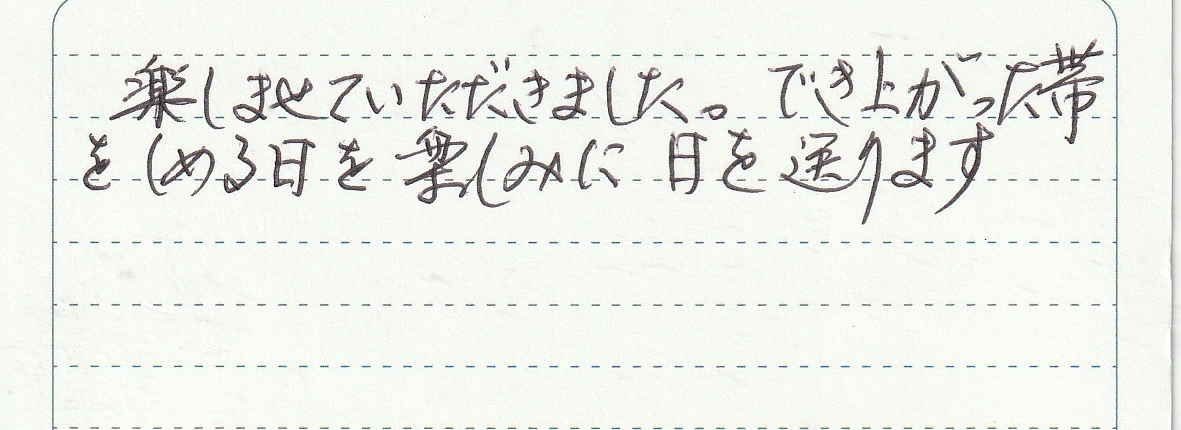 楽しませていただきました。でき上がった帯
をしめる日を楽しみに日を送ります